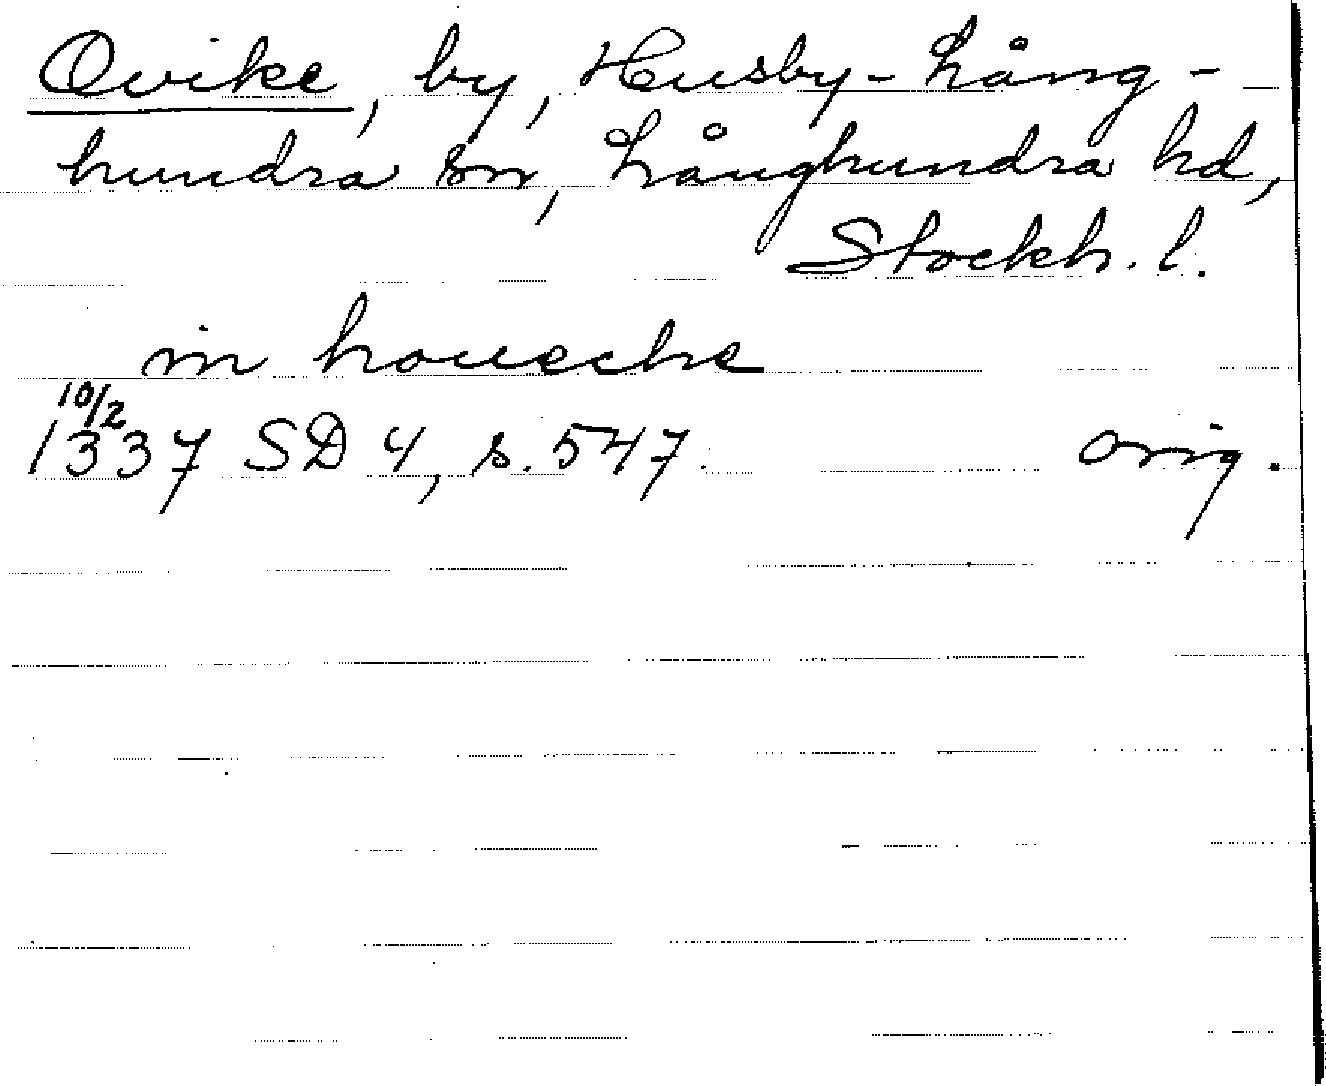 Qvike, by, Husby-Lång-
hundra sn, Långhundra hd,
Stockh. l.
in houeche
10/2
1337 SD 4, s. 547. Orig.